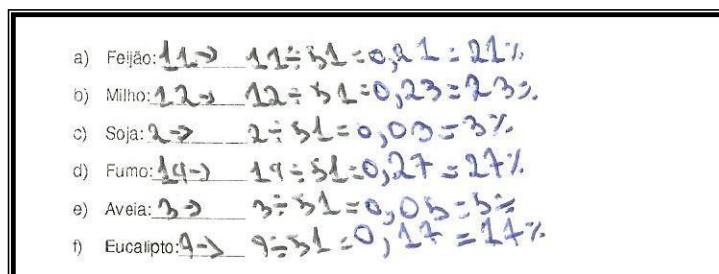 a) Feijão: 11 → 11 ÷ 51 = 0,21 = 21%
b) Milho: 12 → 12 ÷ 51 = 0,23 = 23%
c) Soja: 2 → 2 ÷ 51 = 0,03 = 3%
d) Fumo: 14 → 14 ÷ 51 = 0,27 = 27%
e) Aveia: 3 → 3 ÷ 51 = 0,05 = 5%
f) Eucalipto: 9 → 9 ÷ 51 = 0,17 = 17%